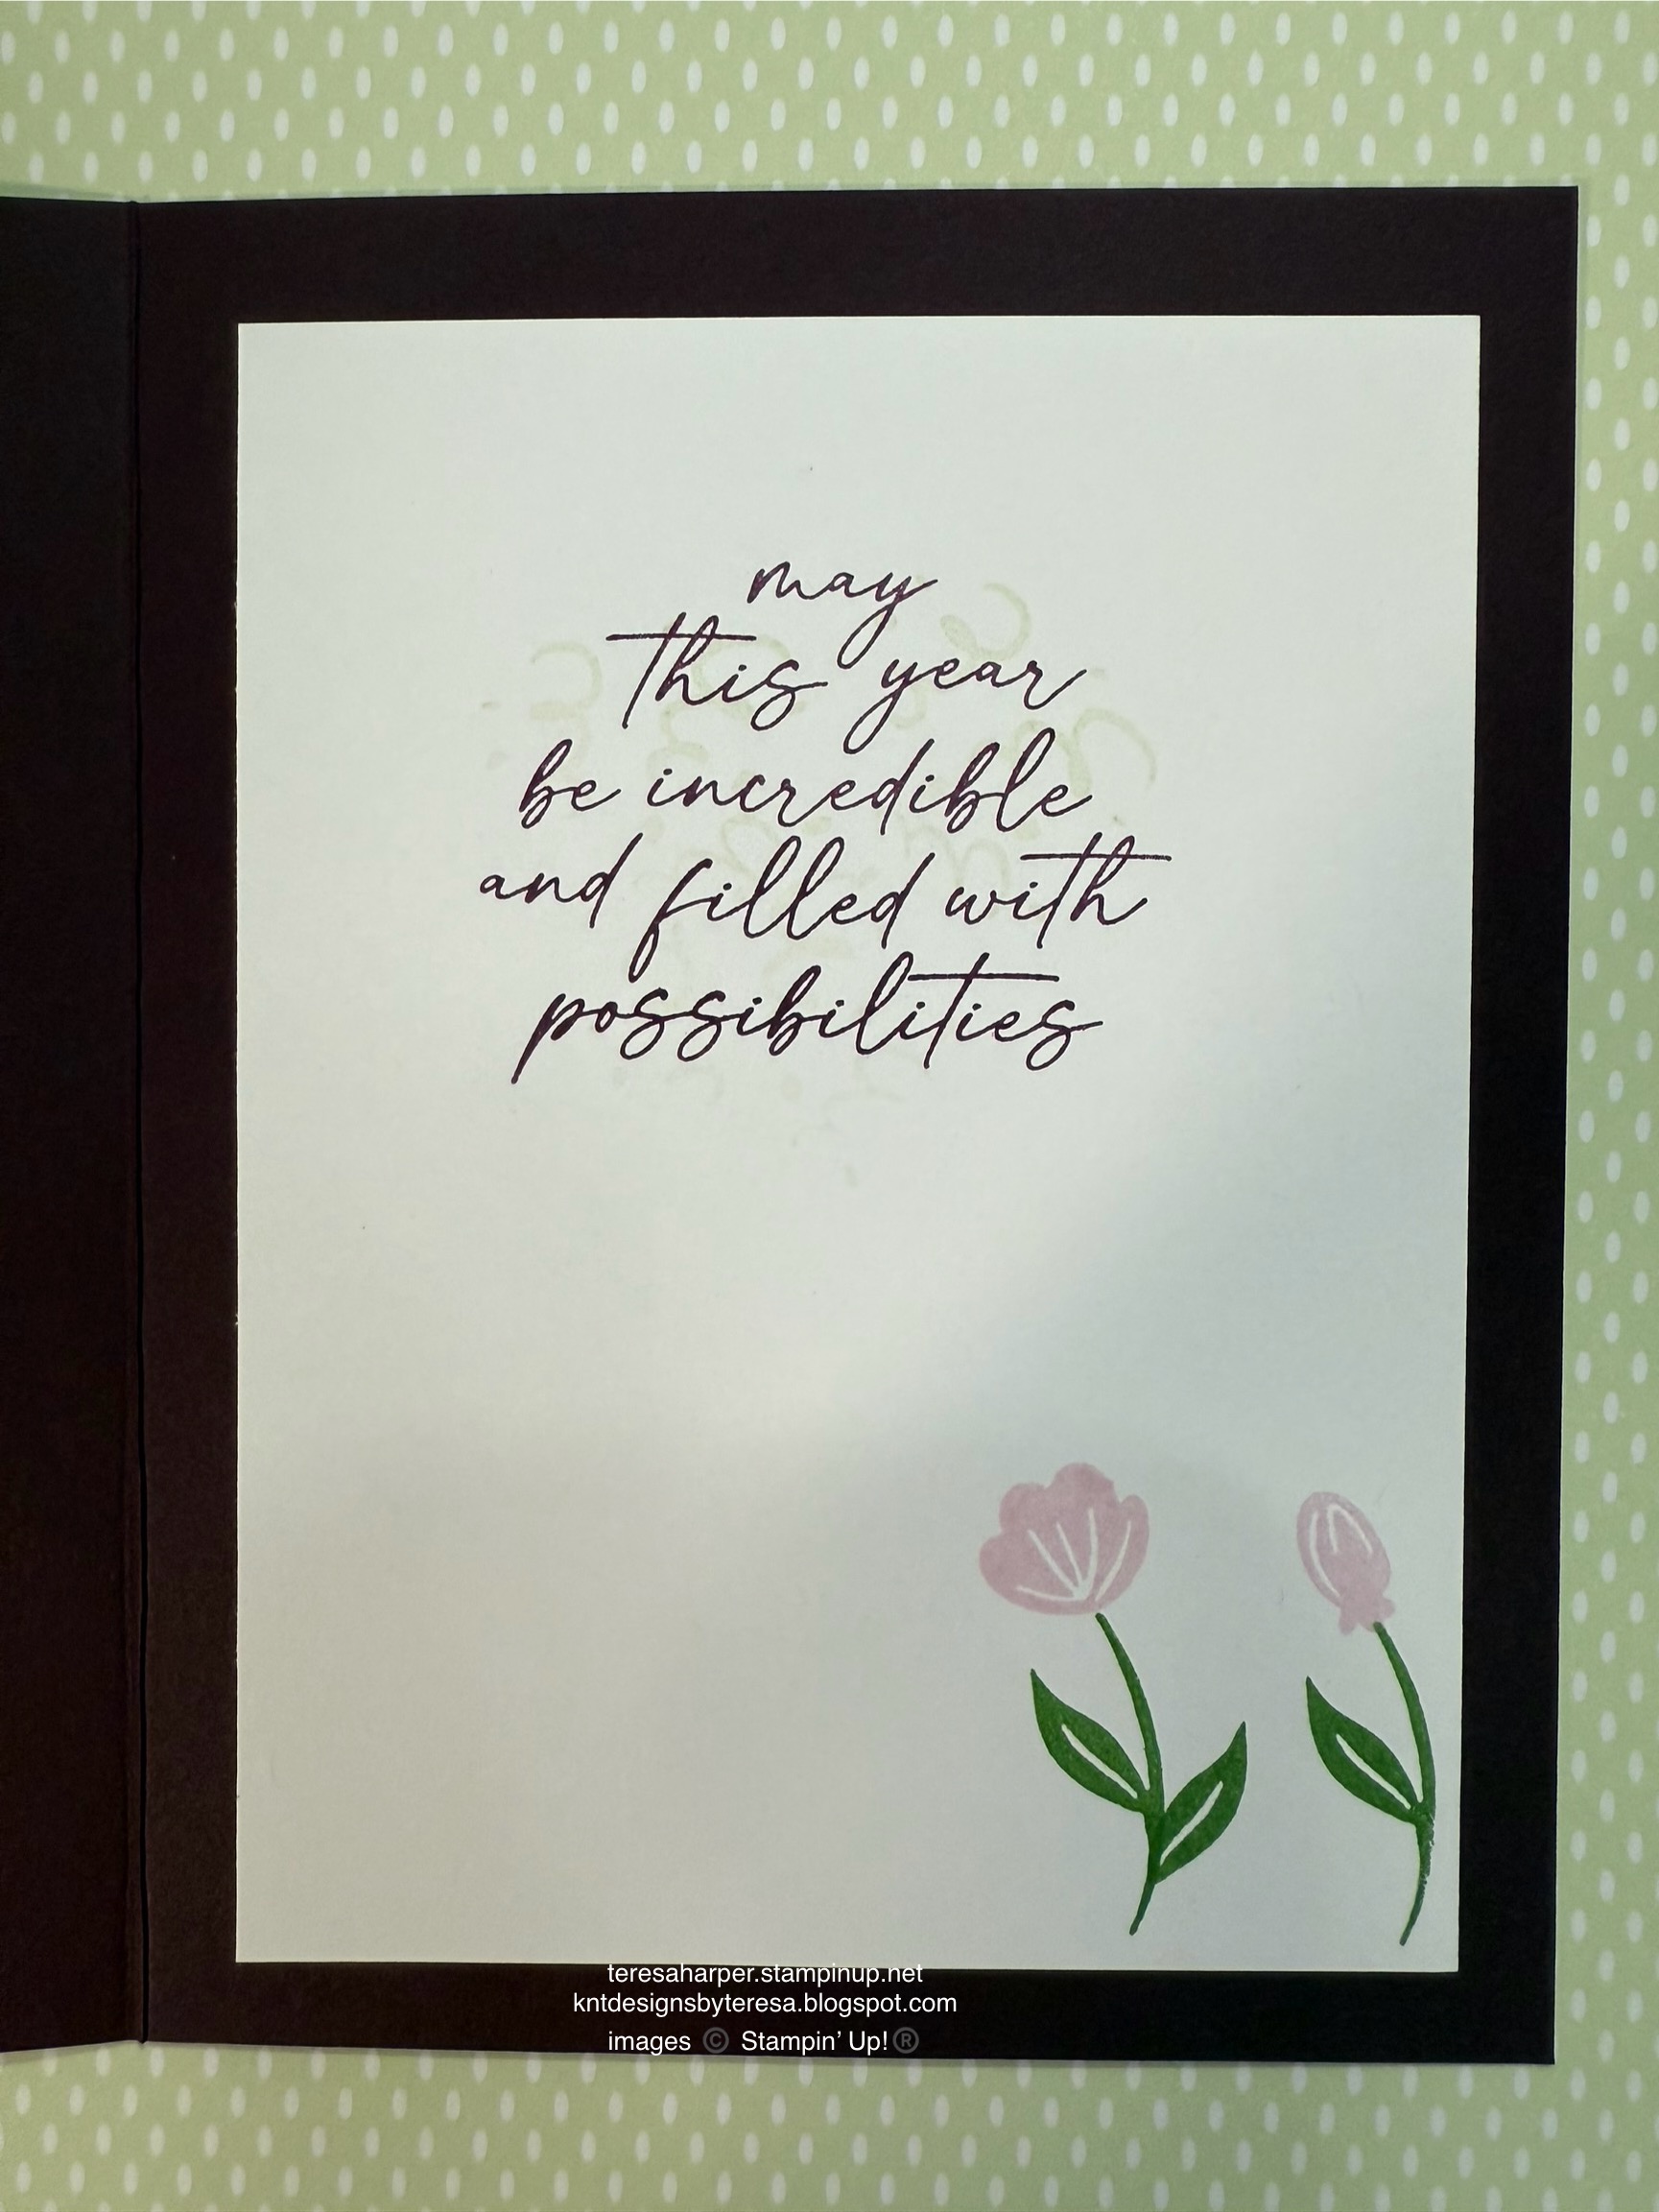 may
this year
be incredible
and filled with
possibilities
teresaharper.stampinup.net
kntdesignsbyteresa.blogspot.com
images © Stampin' Up!®